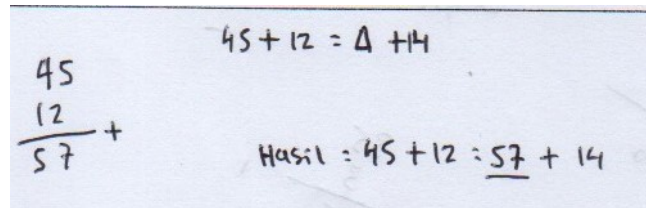 45 + 12 = Δ + 14
45
12
+
57
Hasil = 45 + 12 = 57 + 14